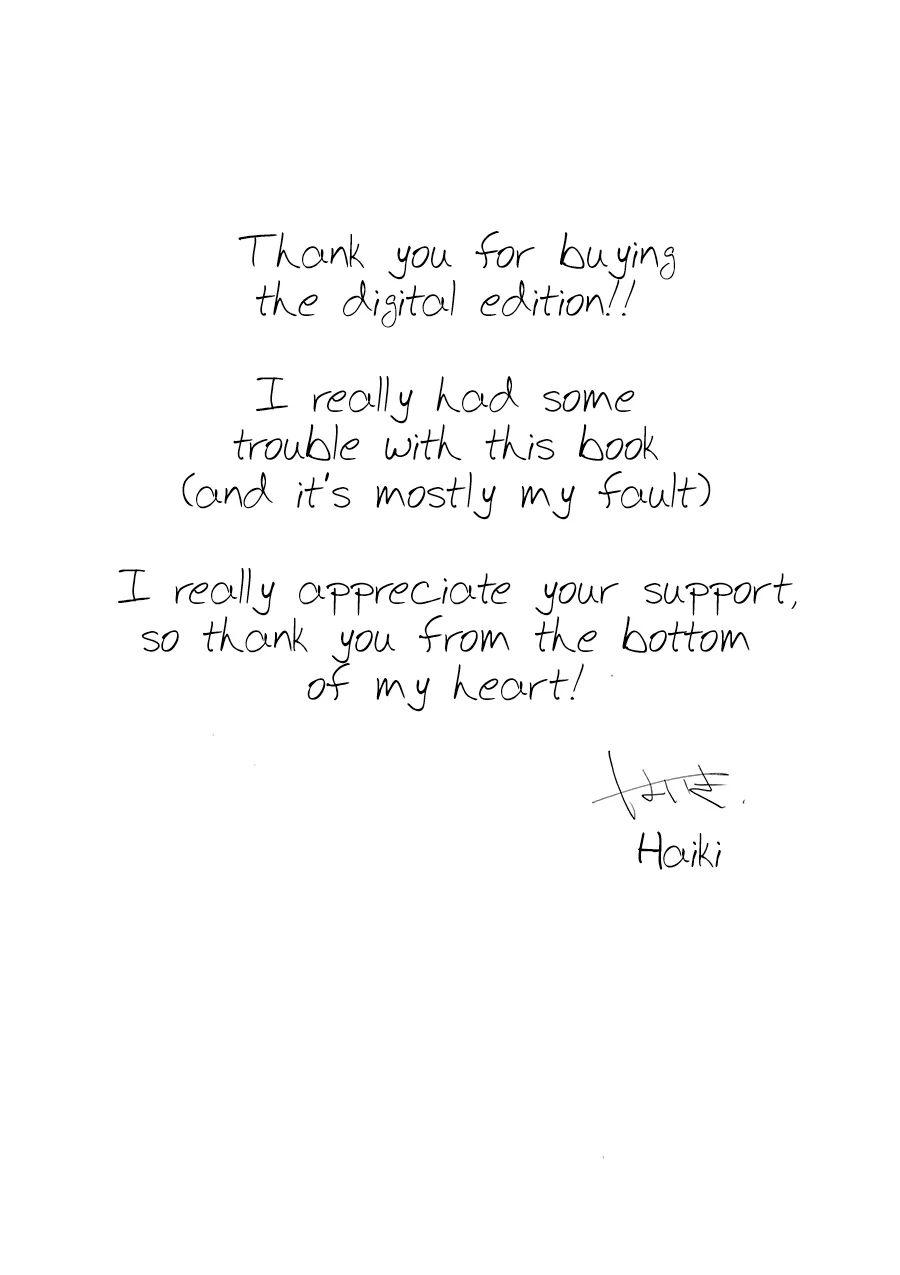 Thank you for buying
the digital edition!!
I really had some
trouble with this book
(and it's mostly my fault)
I really appreciate your support,
so thank you from the bottom
of my heart!
Haiki